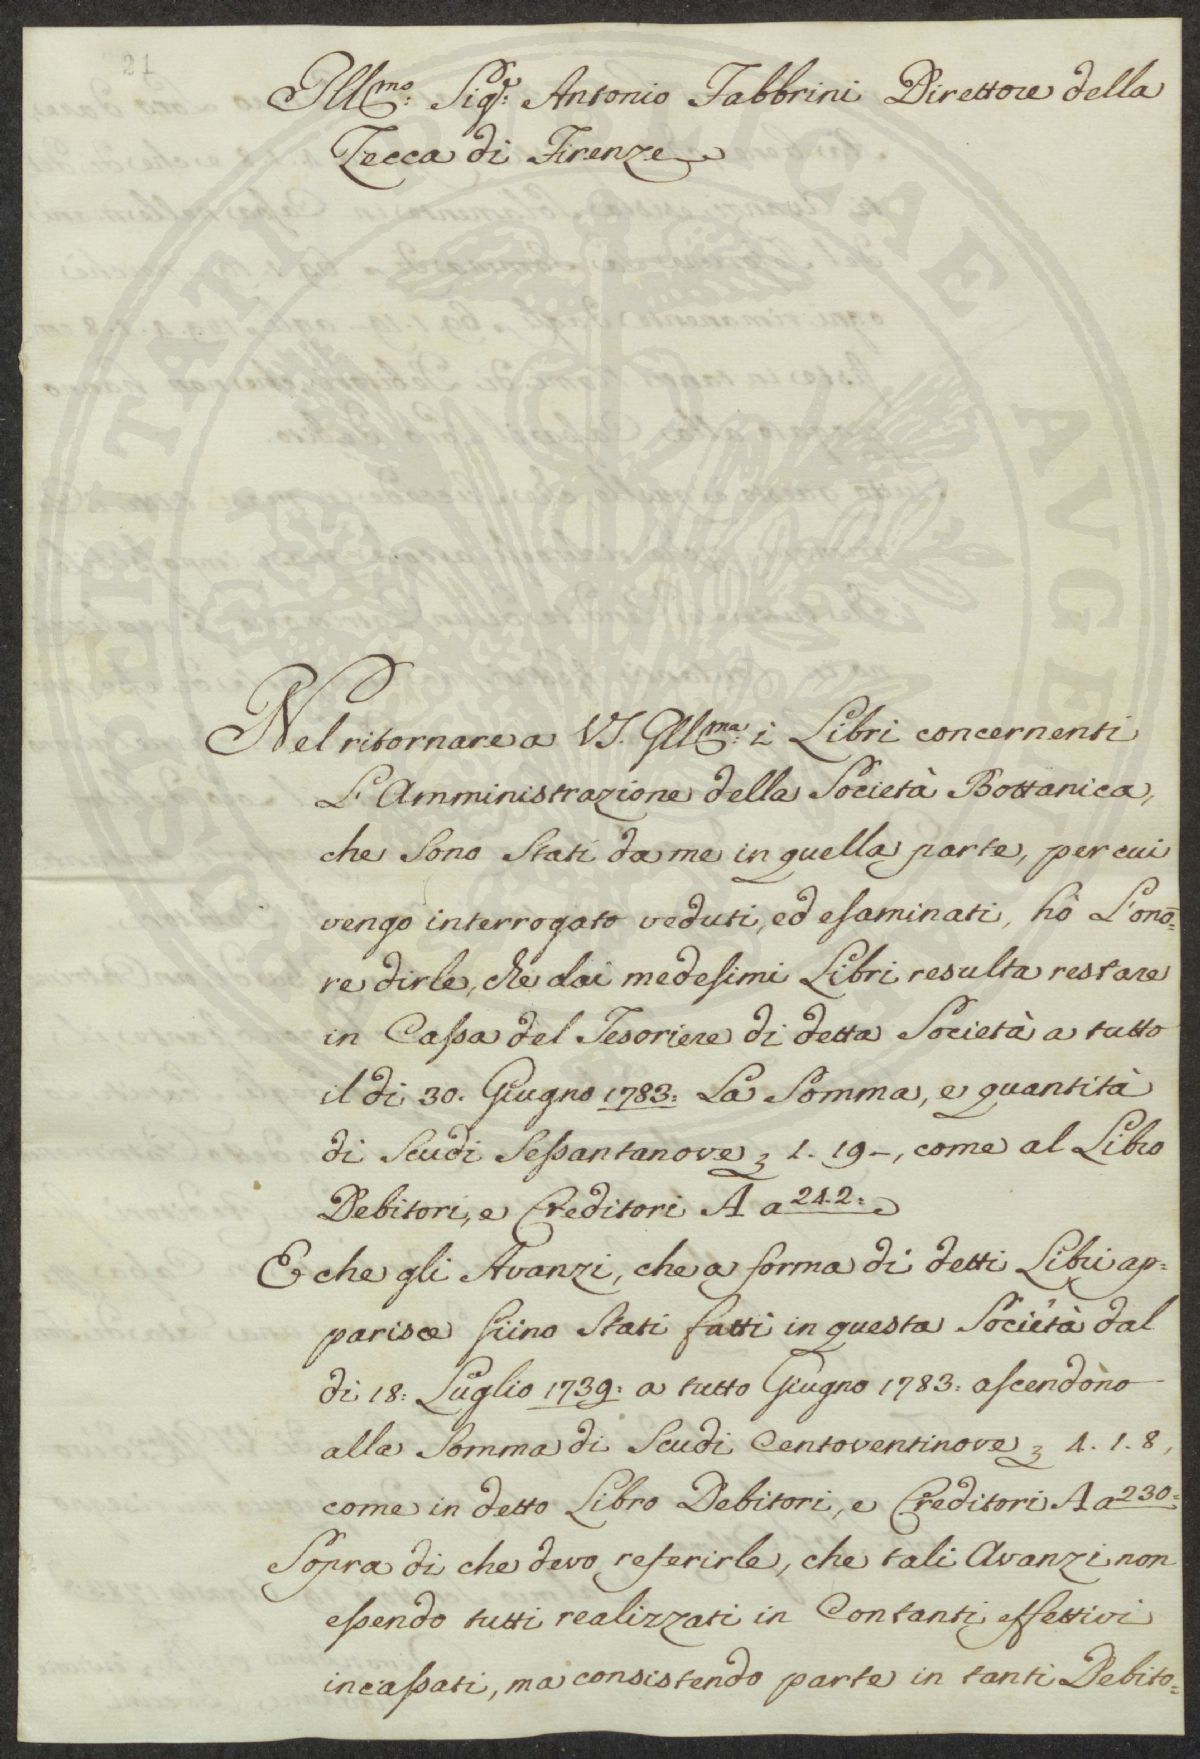 21
Illmo: Sigr: Antonio Fabbrini Direttore della
Zecca di Firenze
Nel ritornare a VS. Illma: i Libri concernenti
L'Amministrazione della Società Bottanica,
che sono stati da me in quella parte, per cui
vengo interrogato veduti, ed esaminati, hò L'ono=
re dirle, che dai medesimi Libri resulta restare
in Cassa del Tesoriere di detta Società a tutto
il dì 30. Giugno 1783: La Somma, e quantità
di Scudi Sessantanove 3 1. 19 –, come al Libro
Debitori, e Creditori A a 242:
E che gli Avanzi, che a forma di detti Libri ap=
parisce siino stati fatti in questa Società dal
dì 18: Luglio 1739: a tutto Giugno 1783: ascendòno
alla Somma di Scudi Centoventinove 3 4. 1. 8,
come in detto Libro Debitori, e Creditori A a 230:
Sopra di che devo referirle, che tali Avanzi non
essendo tutti realizzati in Contanti effettivi
incassati, ma consistendo parte in tanti Debito=